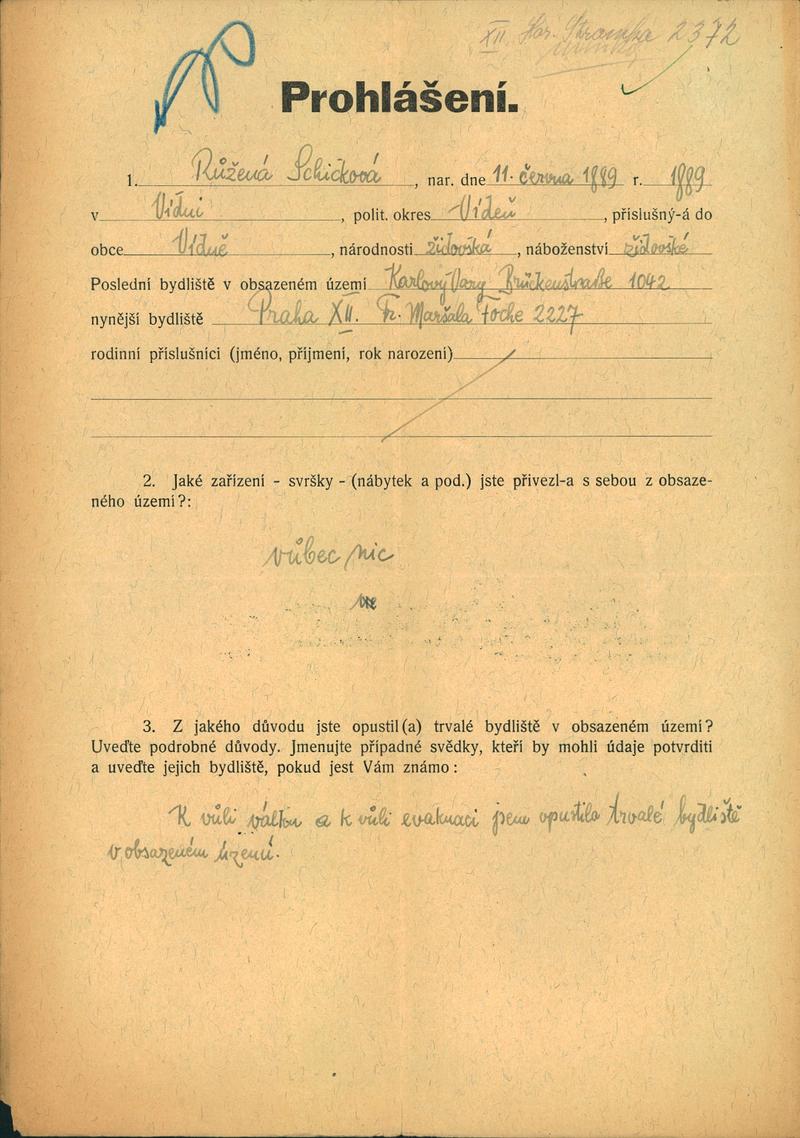 XII. 2372
Prohlášení.
1. Růžená Schicková, nar. dne 11. června 1889 r. 1889
v Vídni, polit. okres Vídeň, příslušný-á do
obce Vídně, národnosti židovská, náboženství židovské
Poslední bydliště v obsazeném území Karlovy Vary Brückenstraße 1042
nynější bydliště Praha XII. Tř. Maršala Foche 2227
rodinní příslušníci (jméno, příjmení, rok narození)
2. Jaké zařízení - svršky - (nábytek a pod.) jste přivezl-a s sebou z obsaze-
ného území?:
vůbec nic
3. Z jakého důvodu jste opustil(a) trvalé bydliště v obsazeném území?
Uveďte podrobné důvody. Jmenujte případné svědky, kteří by mohli údaje potvrditi
a uveďte jejich bydliště, pokud jest Vám známo:
K vůli válku a k vůli evakuaci jsem opustila trvalé bydliště
v obsazeném územú.